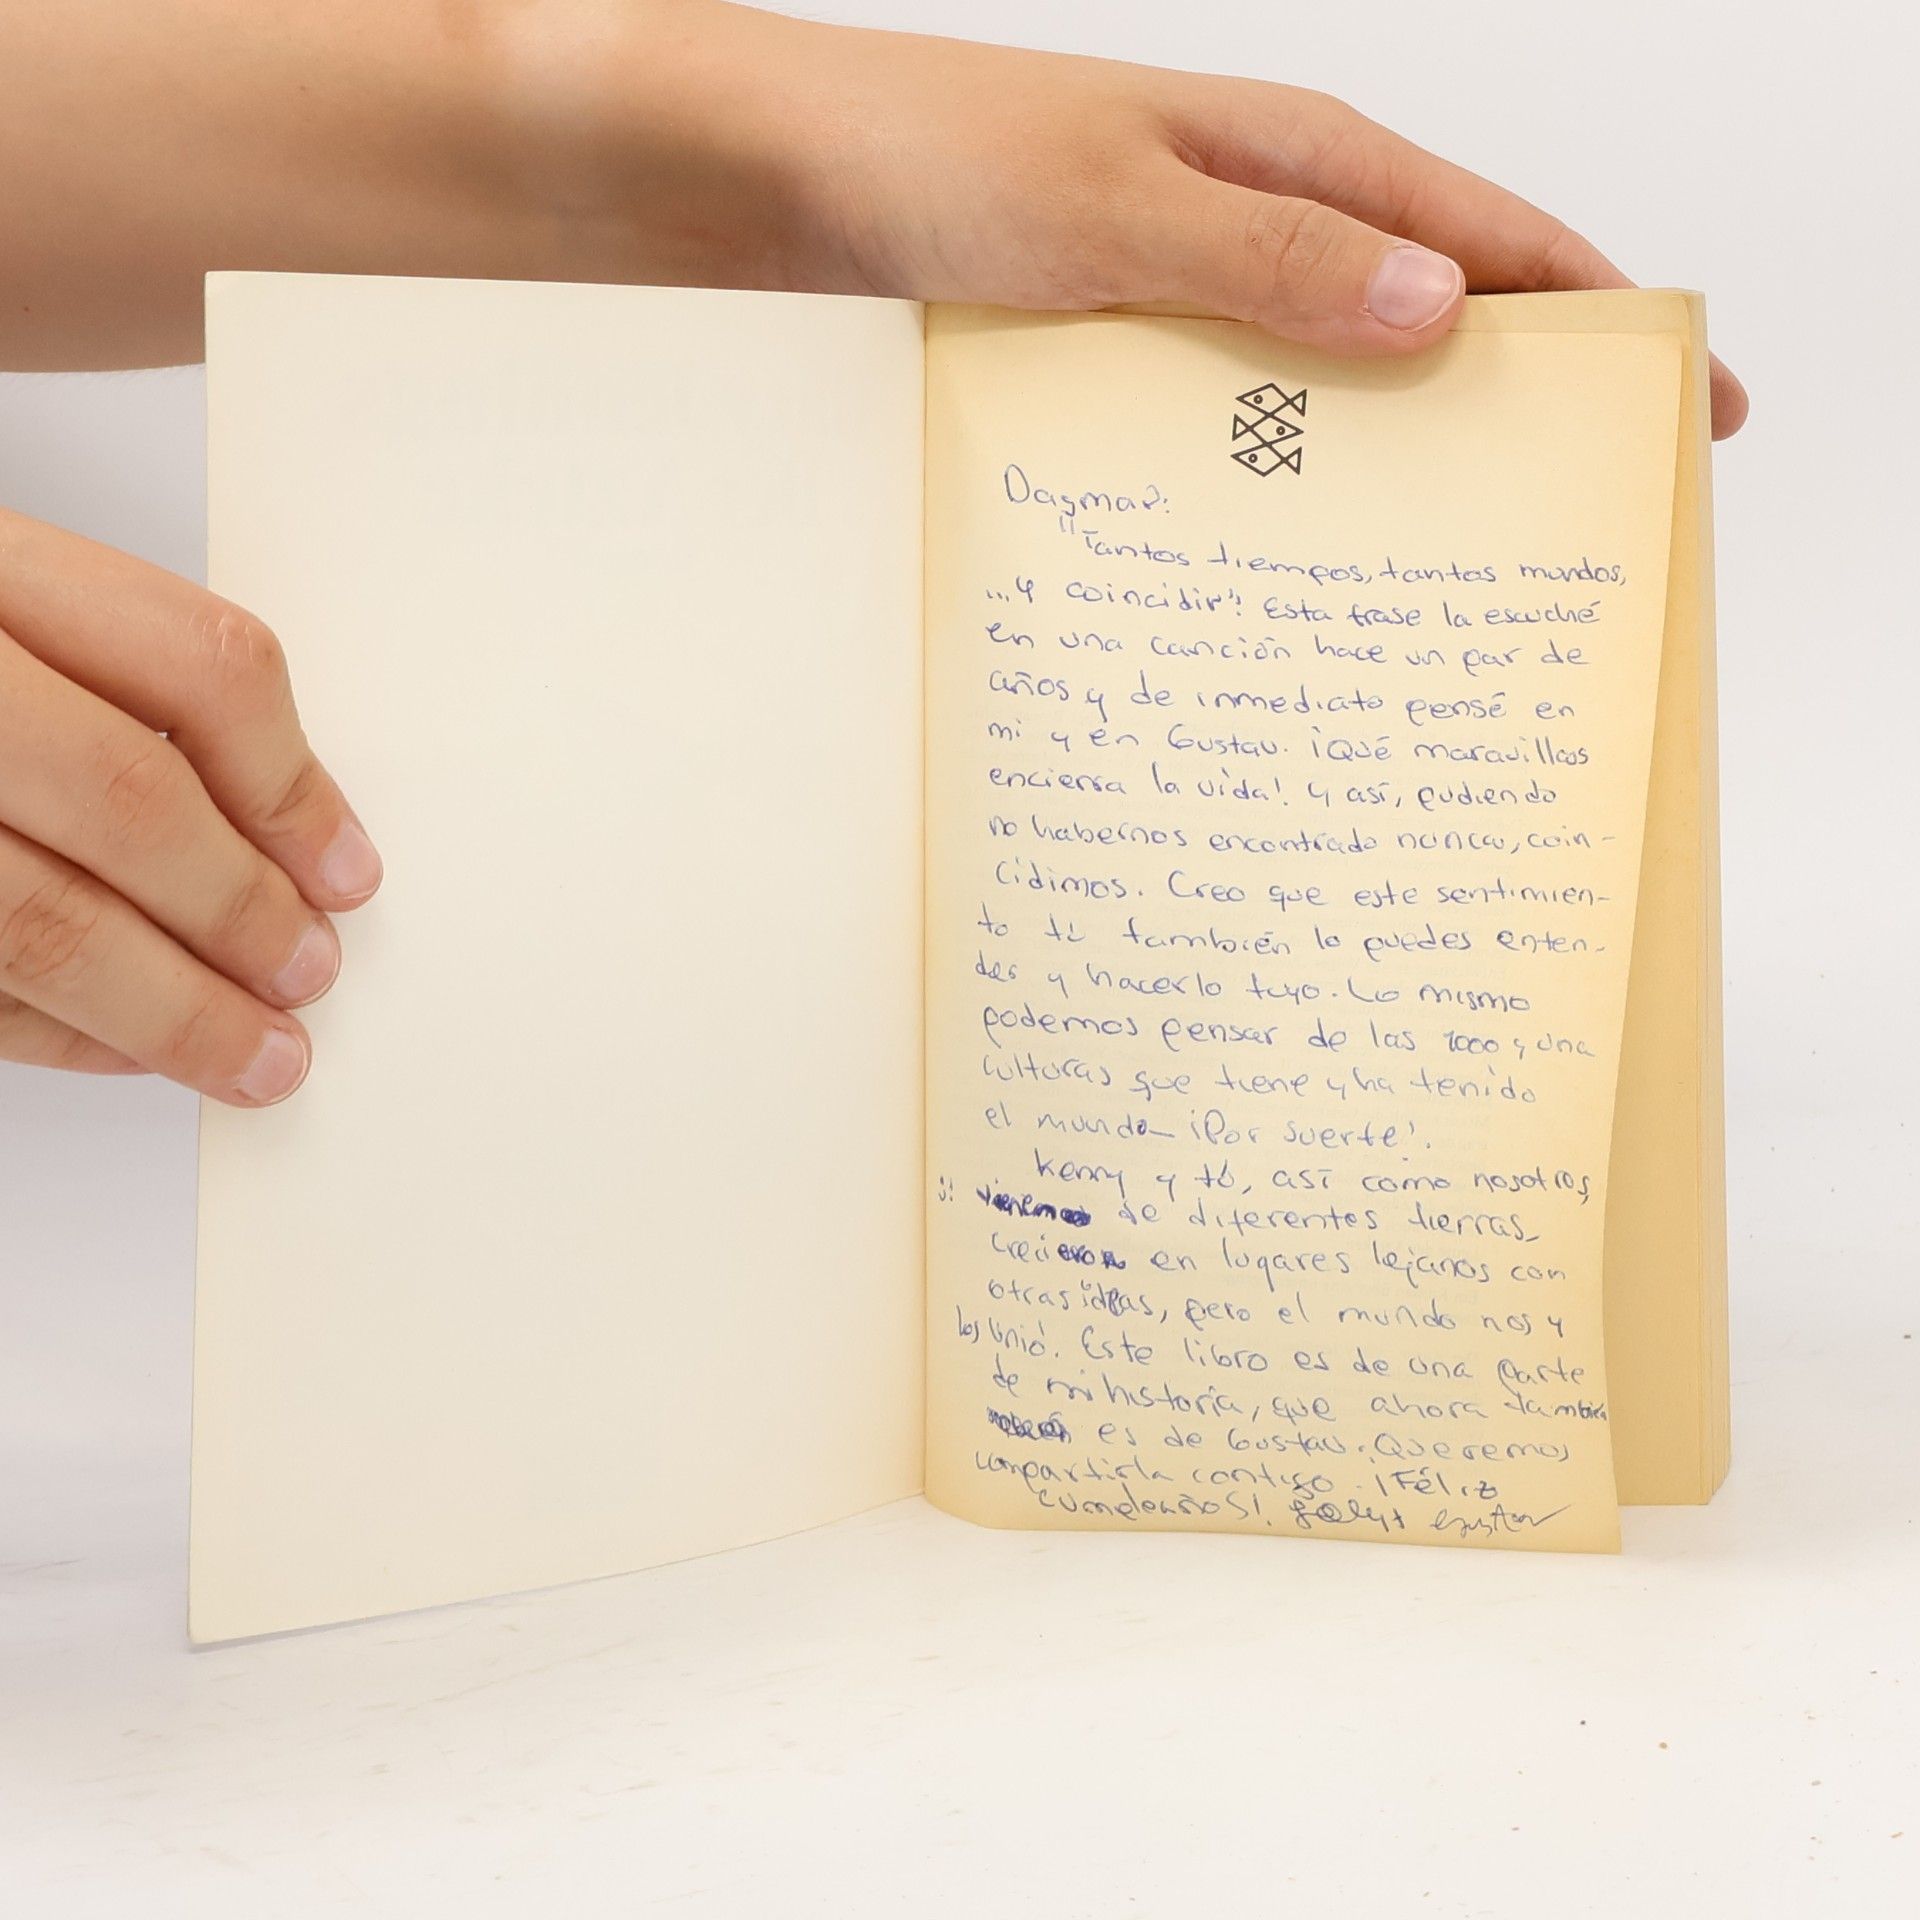 Dagmar:
"Tantos tiempos, tantos mundos,
...y coincidir". Esta frase la escuché
en una canción hace un par de
años y de inmediato pensé en
mi y en Gustav. ¡Qué maravillas
encierra la vida! y así, pudiendo
no habernos encontrado nunca, coin-
cidimos. Creo que este sentimien-
to tú también lo puedes enten-
der y hacerlo tuyo. Lo mismo
podemos pensar de las 1000 y una
culturas que tiene y ha tenido
el mundo_ ¡Por suerte!.
Kenny y tú, así como nosotros,
de diferentes tierras_
crecieron en lugares lejanos con
otras ideas, pero el mundo nos y
los unió. Este libro es de una parte
de mi historia, que ahora también
es de Gustav. Queremos
compartirla contigo. ¡Féliz
cumpleaños!.